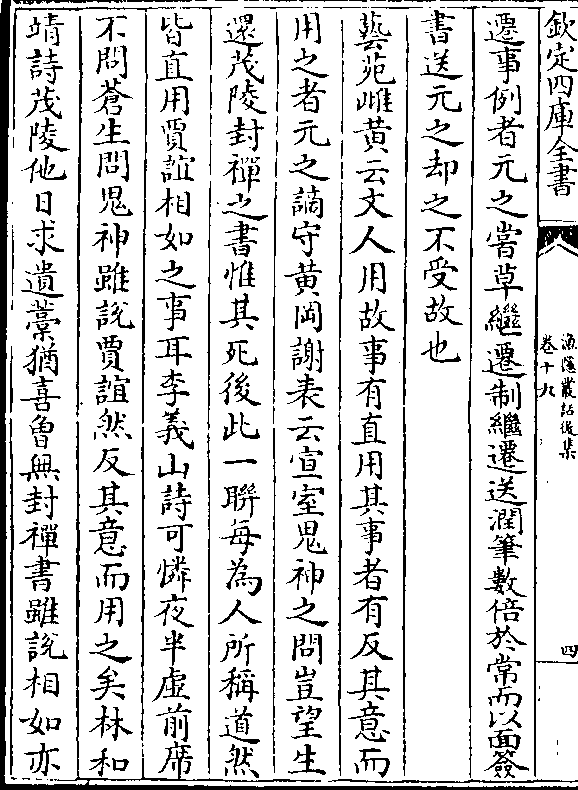 欽定四庫全書
漁隱叢話後集
卷十九
四
遷事例者元之嘗草繼遷制繼遷送潤筆數倍於常而以面簽
書送元之却之不受故也
藝苑雌黄云文人用故事有直用其事者有反其意而
用之者元之謫守黄岡謝表云宣室鬼神之問豈望生
還茂陵封禪之書惟其死後此一聯每為人所稱道然
皆直用賈誼相如之事耳李義山詩可憐夜半虚前席
不問蒼生問鬼神雖說賈誼然反其意而用之矣林和
靖詩茂陵他日求遺藁猶喜曾無封禪書雖說相如亦